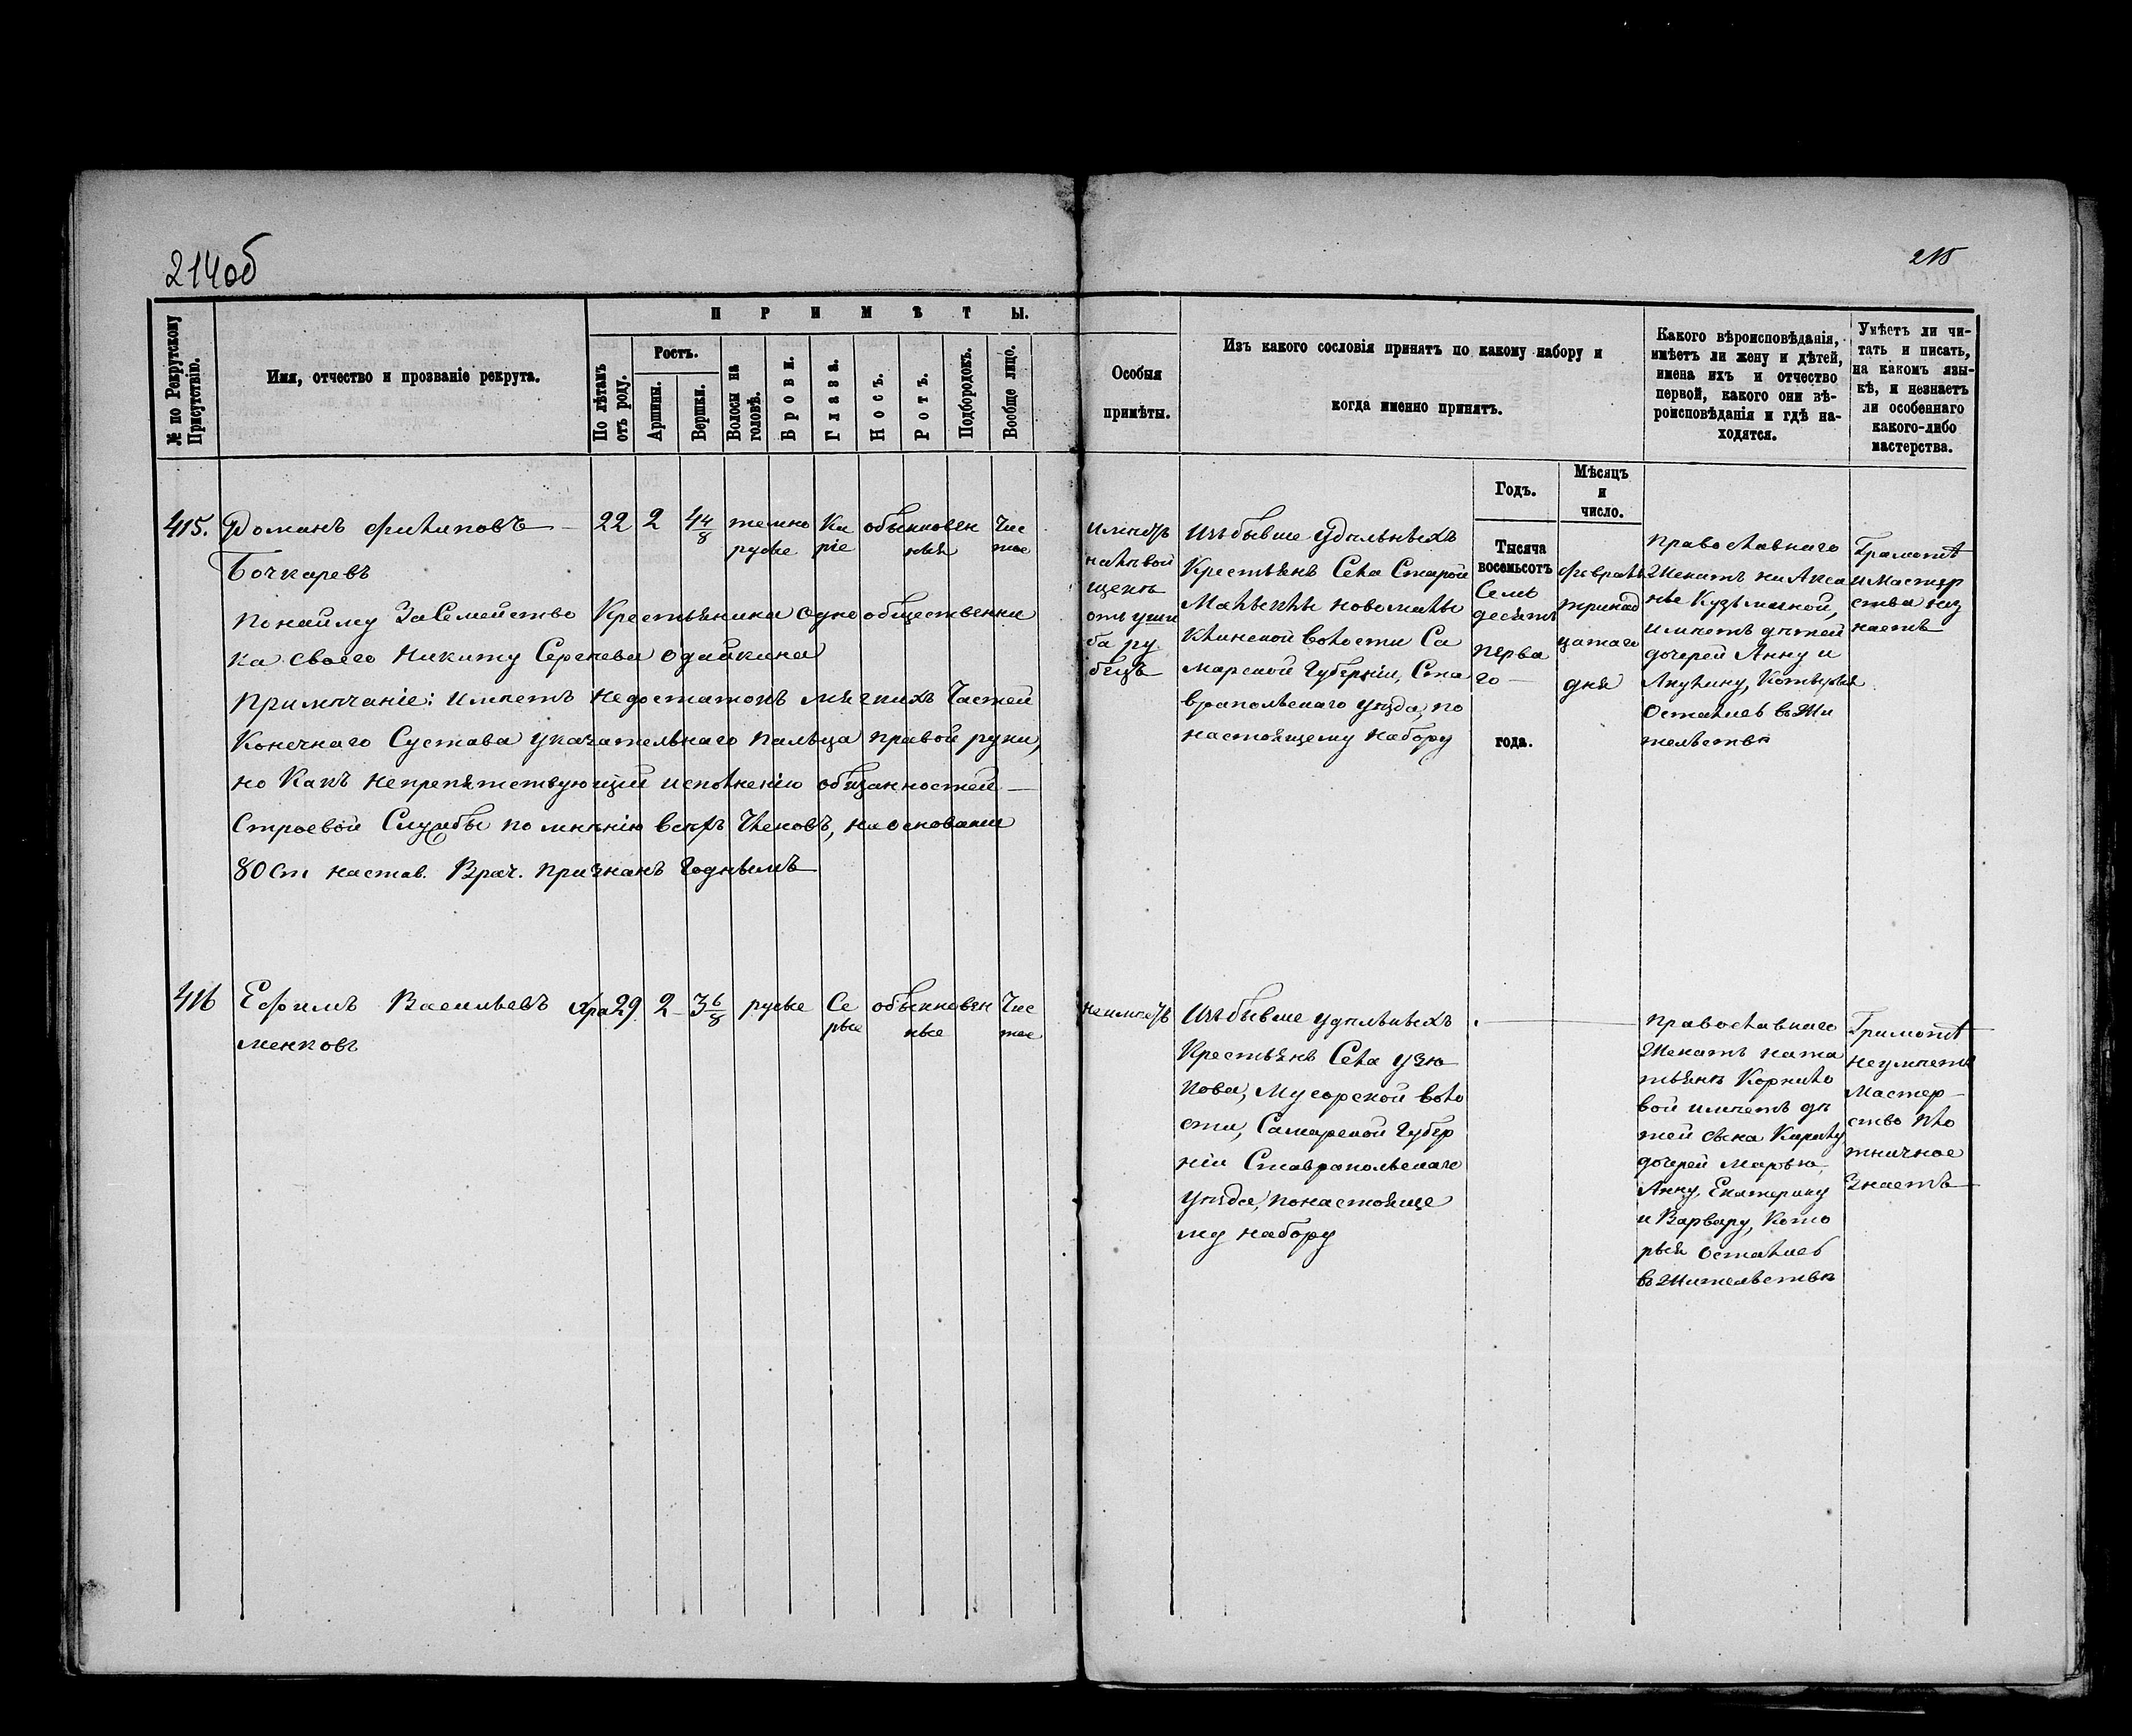 214об
215
№ по Рекрутскому Присутствію.
Имя, отчество и прозваніе рекрута.
ПРИМѢТЫ.
По лѣтамъ отъ роду.
Ростъ.
Аршины.
Вершки.
Волосы на головѣ.
Брови.
Глаза.
Носъ.
Ротъ.
Подбородокъ.
Вообще лицо.
Особыя
примѣты.
Изъ какого сословія принятъ по какому набору и
когда именно принятъ.
Годъ.
Мѣсяцъ
и
число.
Какого вѣроисповѣданія,
имѣетъ ли жену и дѣтей,
имена ихъ и отчество
первой, какого они вѣ-
роисповѣданія и гдѣ на-
ходятся.
Умѣетъ ли чи-
тать и писать,
на какомъ язы-
кѣ, и незнаетъ
ли особеннаго
какого-либо
мастерства.
415. Романъ Филиповъ 22 2 4 4/8 темно Ка обыкновен Чис
русые ріе ныя тое
Бочкаревъ
По найму за Семейство Крестьянина одно общественни
ка своего Никиту Сергѣева
Примѣчаніе: имѣетъ недостатокъ мягкихъ Частей
Конечнаго Сустава указательнаго пальца правой руки,
но Какъ непрепятствующій исполненію обязанностей
Строевой Службы по мнѣнію всѣхъ Членовъ, на основаніи
80 Ст настав. Врач. признанъ Годнымъ
имѣетъ
на лѣвой
щекѣ
отъ уши
ба ру
бецъ
Изъ бывше Удѣльныхъ
Крестьянъ Села Старой
Малыклы Новомалы
клинской волости Са
марской Губерніи, Ста
вропольскаго уѣзда, по
настоящему набору
Тысяча
восемьсотъ
Семь
десятъ
перва
го
года.
Февраля
тринад
цатаго
дня
Православнаго
Женатъ на
нье Кузьминой,
имѣетъ дѣтей
дочерей Анну и
Акулину, Которыя
Остались в Жи
тельствѣ
Грамотѣ
и Мастер
ства нез
наетъ
416 Ефимъ Васильевъ Хра 29 2 3 6/8 русые Се обыкновен Чис
рые ные тое
менковъ
Неимѣетъ
Изъ бывше удѣльныхъ
Крестьянъ Села Узю
кова, Мусорской воло
сти, Самарской Губер
ніи Ставропольскаго
Уѣзда, по настояще
му набору
Православнаго
Женатъ на Та
тьянѣ Корнило
вой имѣетъ дѣ
тей сына Кирилу
дочерей Марью,
Анну, Екатерину
и Варвару, Кото
рыя Остались
в Жительствѣ
Грамотѣ
неумѣетъ
Мастер
ство пло
тничное
Знаетъ